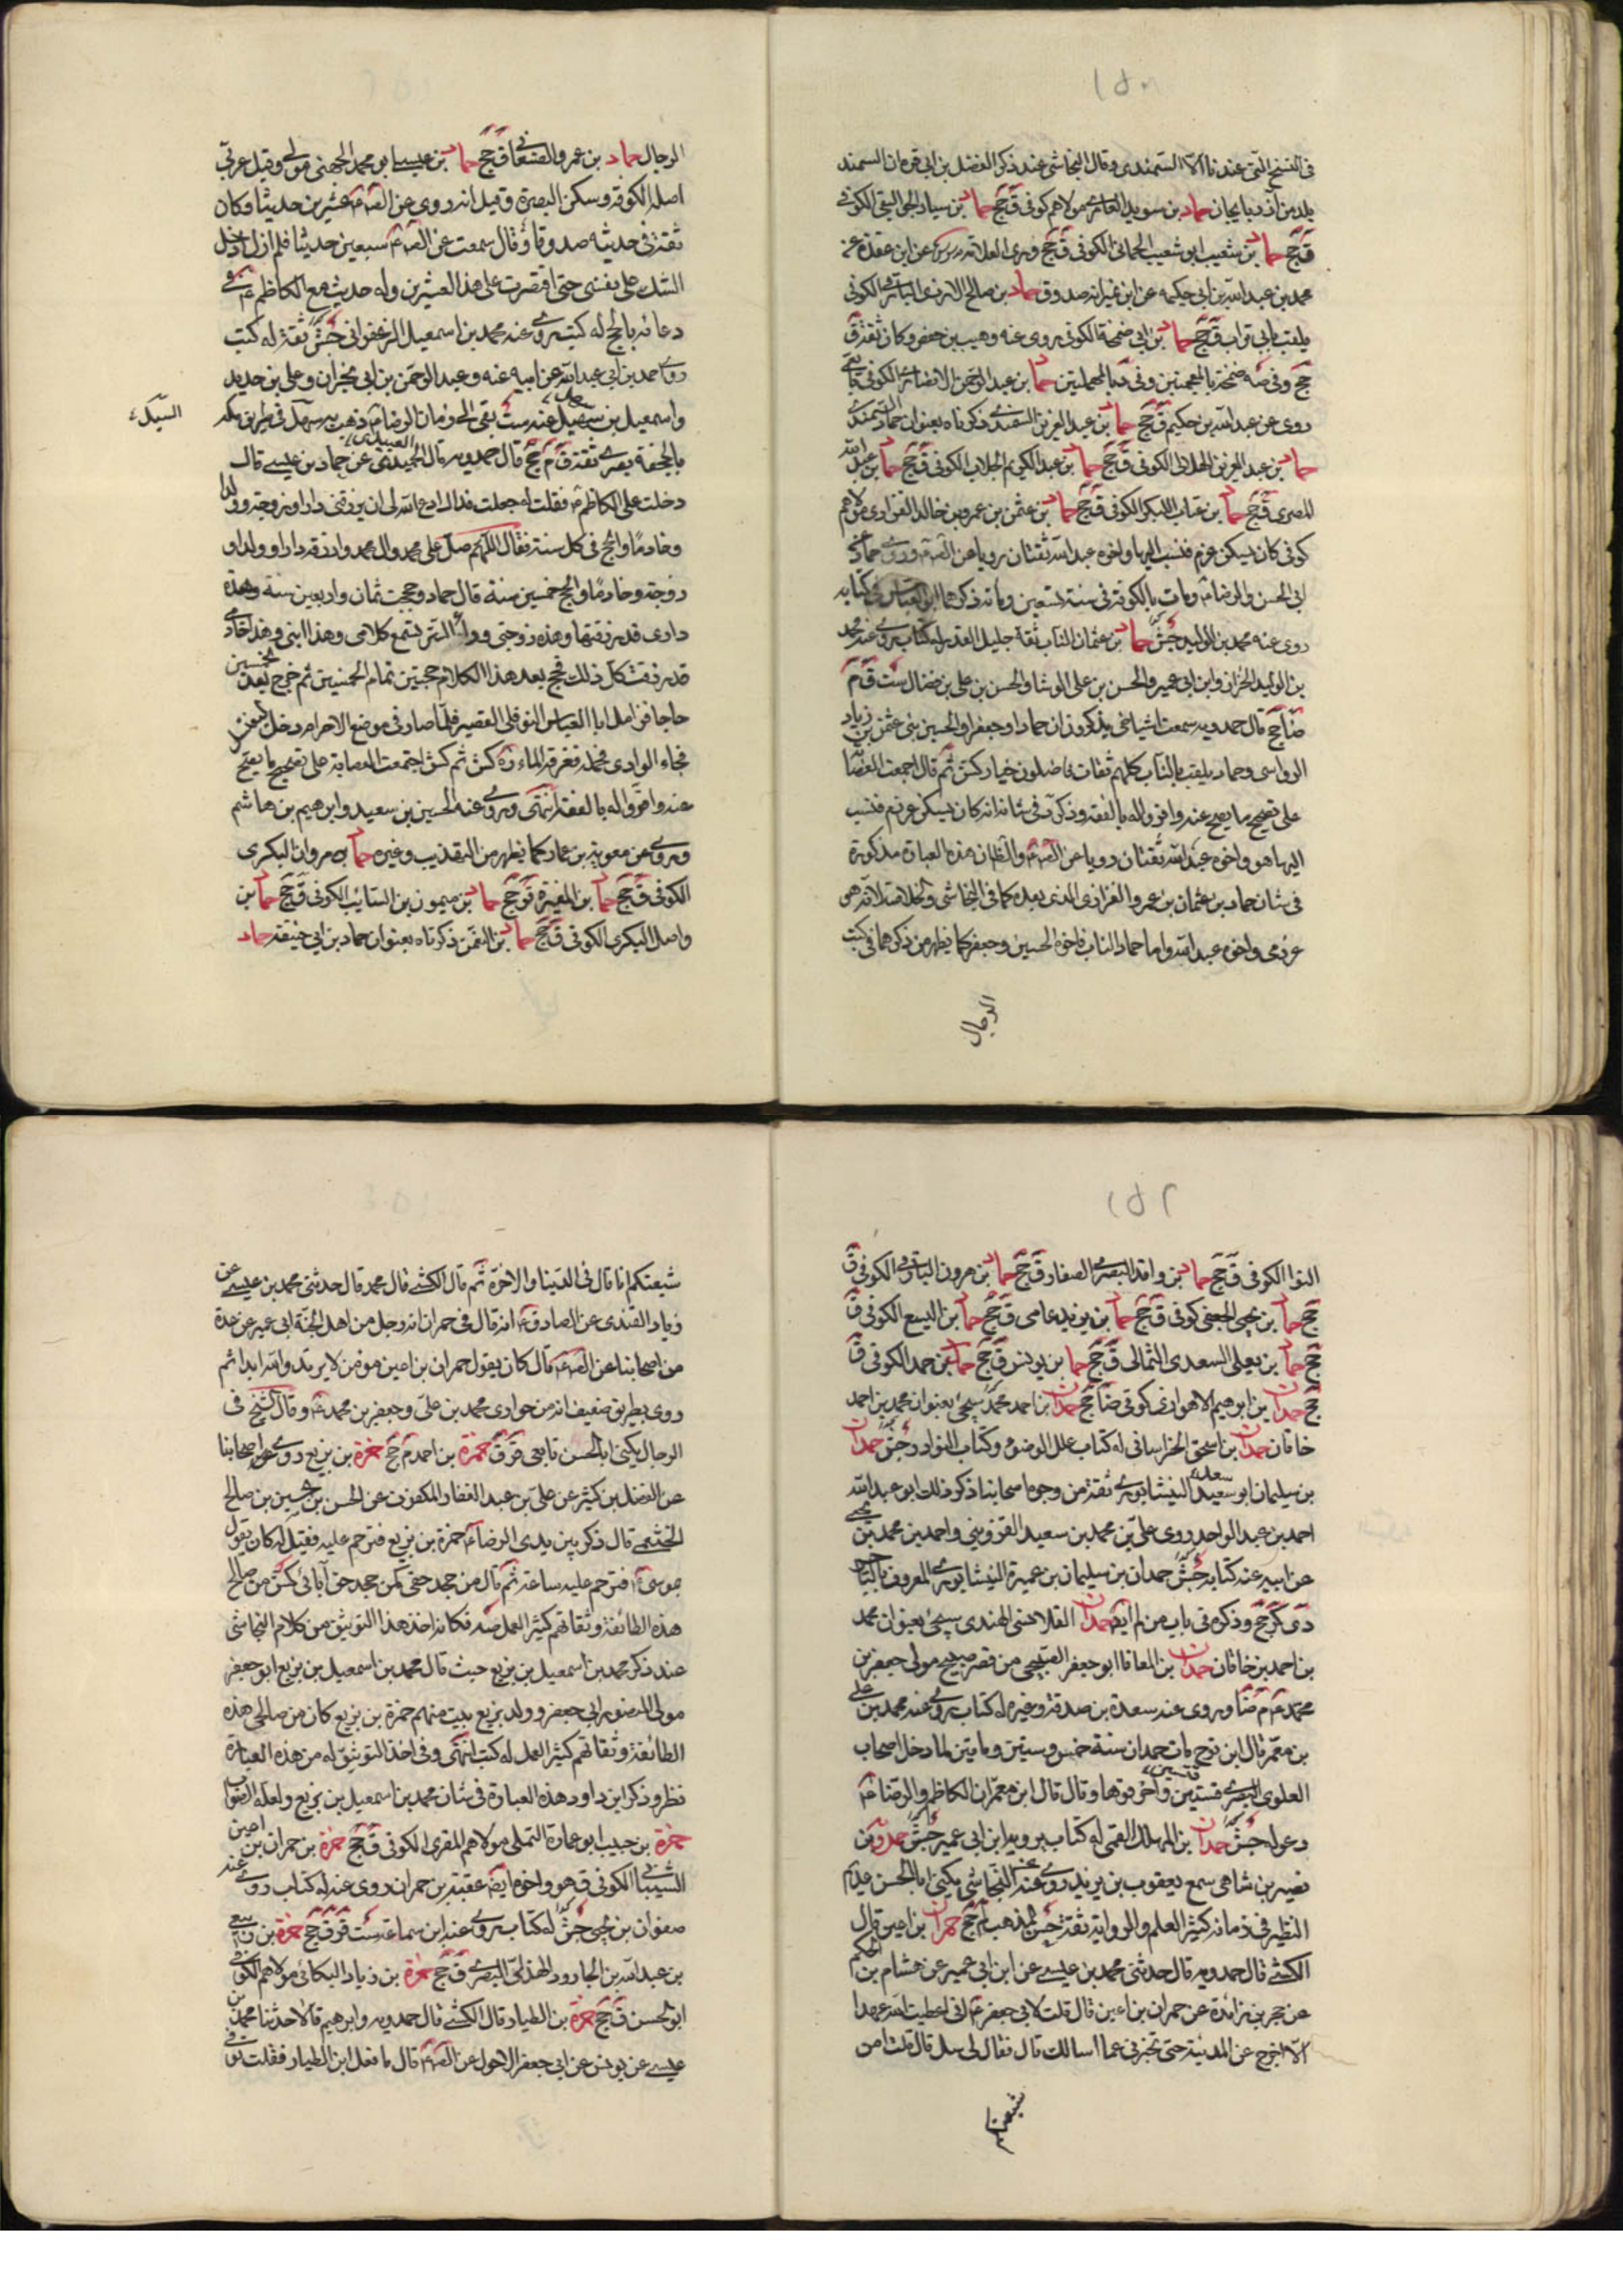 ١٥١
في النسخ التي عندنا الا السمندي وقال النجاشي عند ذكر الفضل بن ابي قرة ان السمند
بلد من آذربايجان حماد بن سويد العامري مولاهم كوفي ق جخ حماد بن سيار الكوفي
ق جخ حماد بن شعيب ابو شعيب الحماني الكوفي ق جخ وروى العلامة عن ابن عقدة عن
محمد بن عبدالله بن ابي حكيمة عن ابن نمير انه صدوق حماد بن صالح الازدي البارقي الكوفي
يلقب بابي تراب ق جخ حماد بن ابي ضمخة الكوفي روى عنه وهيب بن حفص وكان ثقة ق
جخ وفي ضمخة بالمعجمتين وفي بالمهملتين حماد بن عبد الرحمن الانصاري الكوفي تابعي
روى عن عبدالله بن حكيم ق جخ حماد بن عبد العزيز السمندي ذكرناه بعنوان حماد السمندري
حماد بن عبد العزيز الهلالي الكوفي ق جخ حماد بن عبد الكريم الجلاب الكوفي ق جخ حماد بن عبدالله
المصري ق جخ حماد بن عتاب البكري الكوفي ق جخ حماد بن عثمن بن عمرو بن خالد الفزاري مولاهم
كوفي كان يسكن عرزم فنسب اليها واخوه عبدالله ثقتان رويا عن وروى حماد عن
ابي الحسن والرضا ع ومات بالكوفة في سنة تسعين ومائة ذكرهما ابو العباس في كتابه
روى عنه محمد بن الوليد جش حماد بن عثمان الناب ثقة جليل القدر له كتاب روى عنه محمد
بن الوليد الخزاز وابن ابي عمير والحسن بن علي الوشا والحسن بن علي بن فضال ست ق م
ضا جخ قال حمدويه سمعت اشياخي يذكرون ان حمادا وجعفرا والحسين بني عثمن بن زياد
الرواسي وحماد يلقب بالناب كلهم ثقات فاضلون خيار كش ثم قال اجمعت العصابة
على تصحيح ما يصح عنه واقروا له بالفقه وذكر في شانه انه كان يسكن عرزم فنسب
اليها هو واخوه عبدالله ثقتان رويا عن والظان هذه العبارة مذكورة
في شان حماد بن عثمان بن عمرو الفزاري الذي بعده كما في النجاشي والخلاصة لانه هو
عرزمي واخوه عبدالله واما حماد الناب فاخوه الحسين وجعفر كما يظهر من ذكرهما في كتب
الرجال
الرجال حماد بن عمرو الصنعاني ق جخ حماد بن عيسى ابو محمد الجهني مولى وقيل عربي
اصله الكوفة وسكن البصرة وقيل انه روى عن عشرين حديثا وكان
ثقة في حديثه صدوقا وقال سمعت عن سبعين حديثا فلم ازل ادخل
الشك على نفسي حتى اقتصرت على هذا العشرين وله حديث مع الكاظم ع في
دعائه بالحج له كتب روى عنه محمد بن اسمعيل الزعفراني جش ثقة له كتب
روى احمد بن ابي عبدالله عن ابيه عنه وعبد الرحمن بن ابي نجران وعلي بن حديد
واسمعيل بن سهل عنه ست بقي الى زمان الرضا ع ذهب به سيل في طريق مكة
السيل
بالجحفة بصري ثقة ق م جخ قال حمدويه قال العبيدي عن حماد بن عيسى قال
دخلت على الكاظم ع فقلت له جعلت فداك ادع الله لي ان يرزقني دارا وزوجة وولدا
وخادما والحج في كل سنة فقال اللهم صل على محمد وال محمد وارزقه دارا وولدا و
زوجة وخادما والحج خمسين سنة قال حماد وحججت ثمان واربعين سنة وهذه
داري قد رزقتها وهذه زوجتي وراء الستر تسمع كلامي وهذا ابني وهذا خادمي
قد رزقت كل ذلك فحج بعد هذا الكلام حجتين تمام الخمسين ثم خرج بعد الخمسين
حاجا فزامل ابا العباس النوفلي القصير فلما صار في موضع الاحرام دخل يغتسل
فجاء الوادي فحمله فغرقه الماء ره كش ثم كش اجتمعت العصابة على تصحيح ما يصح
عنه واقروا له بالفقه انتهى وروى عنه الحسين بن سعيد وابرهيم بن هاشم
وروى عن معوية بن عمار كما يظهر من التهذيب وغيره حماد بن مروان البكري
الكوفي ق جخ حماد بن المغيرة ق جخ حماد بن ميمون بن السائب الكوفي ق جخ حماد بن
واصل البكري الكوفي ق جخ حماد بن النعمن ذكرناه بعنوان حماد بن ابي حنيفة حماد
١٥٢
النوا الكوفي ق جخ حماد بن واقد البصري الصفار ق جخ حماد بن هرون البارقي الكوفي ق
جخ حماد بن يحيى الجعفي كوفي ق جخ حماد بن يزيد عامي ق جخ حماد بن اليسع الكوفي ق
جخ حماد بن يعلى السعدي الثمالي ق جخ حماد بن يونس ق جخ حمد بن حمد الكوفي ق
جخ حمدان بن ابرهيم الاهوازي كوفي ضا جخ حمدان بن احمد سيجئ بعنوان محمد بن احمد
خاقان حمدان بن اسحق الخراساني له كتاب علل الوضوء وكتاب النوادر جش حمدان
بن سليمان ابو سعيد النيشابوري ثقة من وجوه اصحابنا ذكر ذلك ابو عبدالله
احمد بن عبد الواحد روى علي بن محمد بن سعيد القزويني واحمد بن محمد بن يحيى
عن ابيه عنه كتابه جش حمدان بن سليمان بن عميرة النيشابوري المعروف بالتاجر
دي كر جخ وذكره في باب من لم ايضا حمدان القلانسي الهندي سيجئ بعنوان محمد
بن احمد بن خاقان حمدان بن المعافا ابو جعفر الصبيحي من قصر صبيح مولى جعفر بن
محمد ع م ضا وروى عن مسعدة بن صدقة وغيره له كتاب روى عنه محمد بن علي
بن معمر قال ابن نوح مات حمدان سنة خمس وستين ومايتين لما دخل اصحاب
العلوي البصري قسين واخربوها وقال قال ابن معمر ان الكاظم والرضا ع
دعوا له جش حمدان بن المهلب القمي له كتاب يرويه ابن ابي عمير جش حمدويه بن
نصير بن شاهي سمع يعقوب بن يزيد روى عنه النجاشي يكنى ابا الحسن عديم
النظير في زمانه كثير العلم والرواية ثقة حسن المذهب لم جخ حمران بن اعين قال
الكشي قال حمدويه قال حدثني محمد بن عيسى عن ابن ابي عمير عن هشام بن الحكم
عن حجر بن زائدة عن حمران بن اعين قال قلت لابي جعفر ع اني اعطيت الله عهدا
الا اخرج عن المدينة حتى تخبرني عما اسالك قال فقال لي سل قال قلت امن
شيعتكم
شيعتكم انا قال في الدنيا والاخرة ثم قال الكشي قال محمد قال حدثني محمد بن عيسى عن
زياد القندي عن الصادق ع انه قال في حمران انه رجل من اهل الجنة ابي عمير عن عدة
من اصحابنا عن قال كان يقول حمران بن اعين مومن لا يرتد والله ابدا ثم
روى بطريق ضعيف انه من حواري محمد بن علي وجعفر بن محمد ع وقال الشيخ في
الرجال يكنى ابا الحسن تابعي قر ق حمزة بن احمد م جخ حمزة بن بزيع روى اصحابنا
عن الفضل بن كثير عن علي بن عبد الغفار المكفوف عن الحسن بن حسين بن صالح
الخثعمي قال ذكر بين يدي الرضا ع حمزة بن بزيع فترحم عليه فقيل له كان يقول
بموسى ع فترحم عليه ساعة ثم قال من جحد حقي كمن جحد حق آبائي كش من صالحي
هذه الطائفة وثقاتهم كثير العمل صه فكانه اخذ هذا التوثيق من كلام النجاشي
عند ذكر محمد بن اسمعيل بن بزيع حيث قال محمد بن اسمعيل بن بزيع ابو جعفر
مولى المنصور ابي جعفر وولد بزيع بيت منهم حمزة بن بزيع كان من صالحي هذه
الطائفة وثقاتهم كثير العمل له كتب انتهى وفي اخذ التوثيق له من هذه العبارة
نظر وذكر ابن داود هذه العبارة في شان محمد بن اسمعيل بن بزيع ولعله الصواب
حمزة بن حبيب ابو عمارة التملي مولاهم المقري الكوفي ق جخ حمزة بن حمران بن اعين
الشيباني الكوفي ق هو واخوه ايضا عقبة بن حمران روى عنه له كتاب روى عنه
صفوان بن يحيى جش له كتاب روى عنه ابن سماعة ست قر ق جخ حمزة بن ربيع
بن عبدالله بن الجارود الهذلي البصري ق جخ حمزة بن زياد البكائي مولاهم الكوفي
ابو الحسن ق جخ حمزة بن الطيار قال الكشي قال حمدويه وابرهيم قالا حدثنا محمد بن
عيسى عن يونس عن ابي جعفر الاحول عن قال ما فعل ابن الطيار فقلت توفي